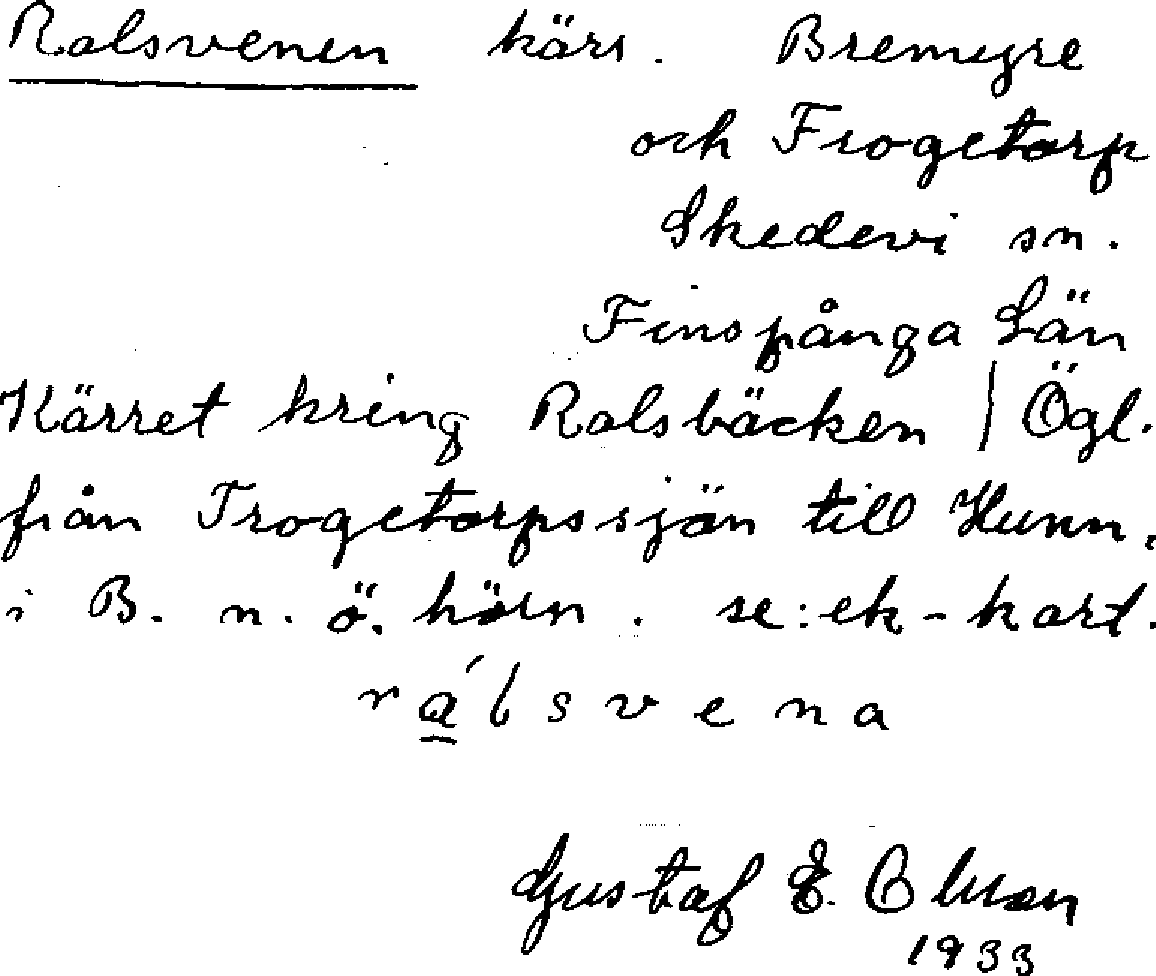 Ralsvenen kärr. Bremyre
och Trogetorp
Skedevi sn.
Finspånga Län
Kärret kring Ralsbäcken / Ögl.
från Trogetorpssjön till Hunn,
i B. n. ö. hörn. se: ek-kart.
rálsvena
Gustaf E. Olsson
1933